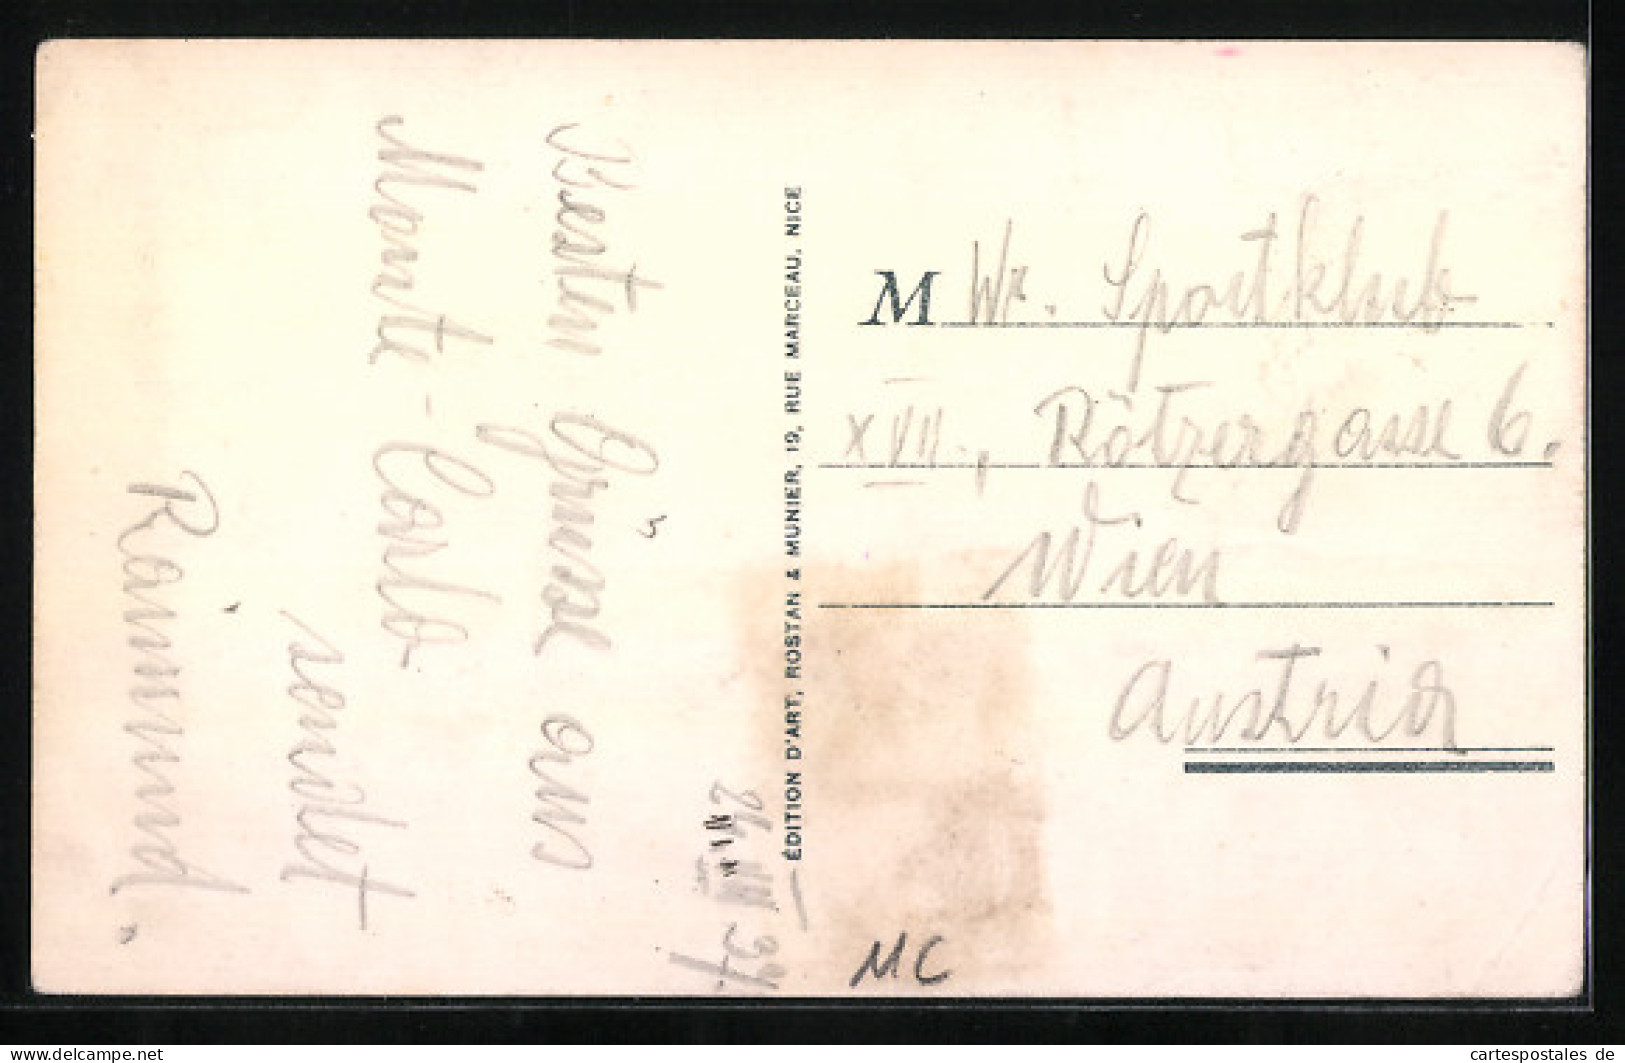 Besten Grüsse aus
Monte-Carlo
sendet
Raimund.
ÉDITION D'ART, ROSTAN & MUNIER, 19, RUE MARCEAU, NICE
M Wr. Sportklub
XVII., Rötzergasse 6.
Wien
Austria
MC
www.cartespostales.de